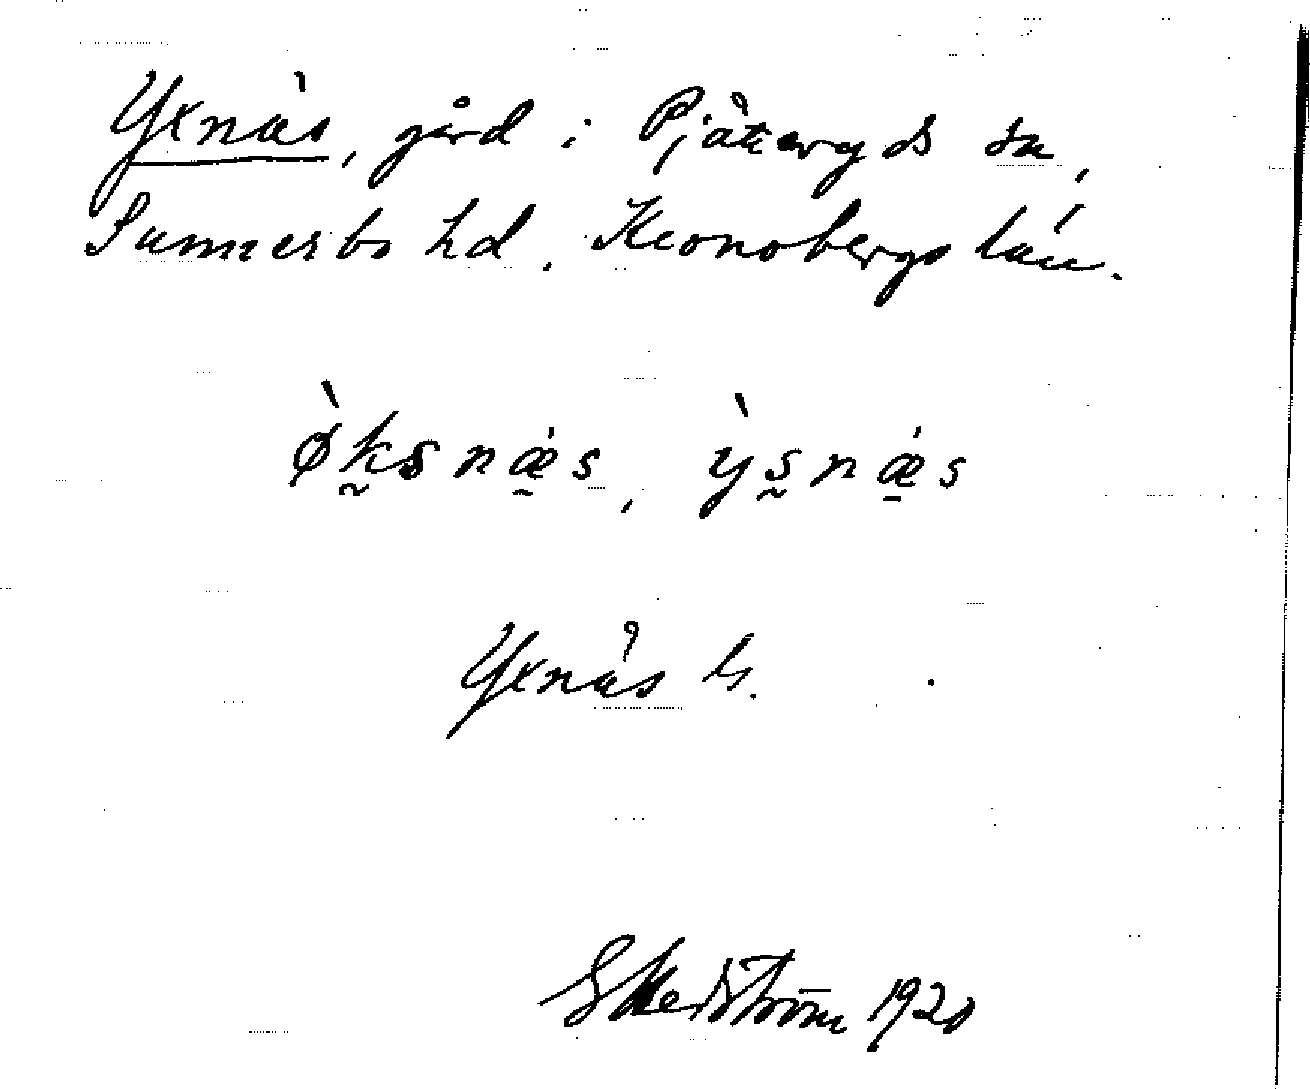 Yxnäs, gård i Pjätteryds sn,
Sunnerbo hd. Kronobergs län.
ø̀ksnǽs, ỳsnǽs
Yxnäs h.
1920